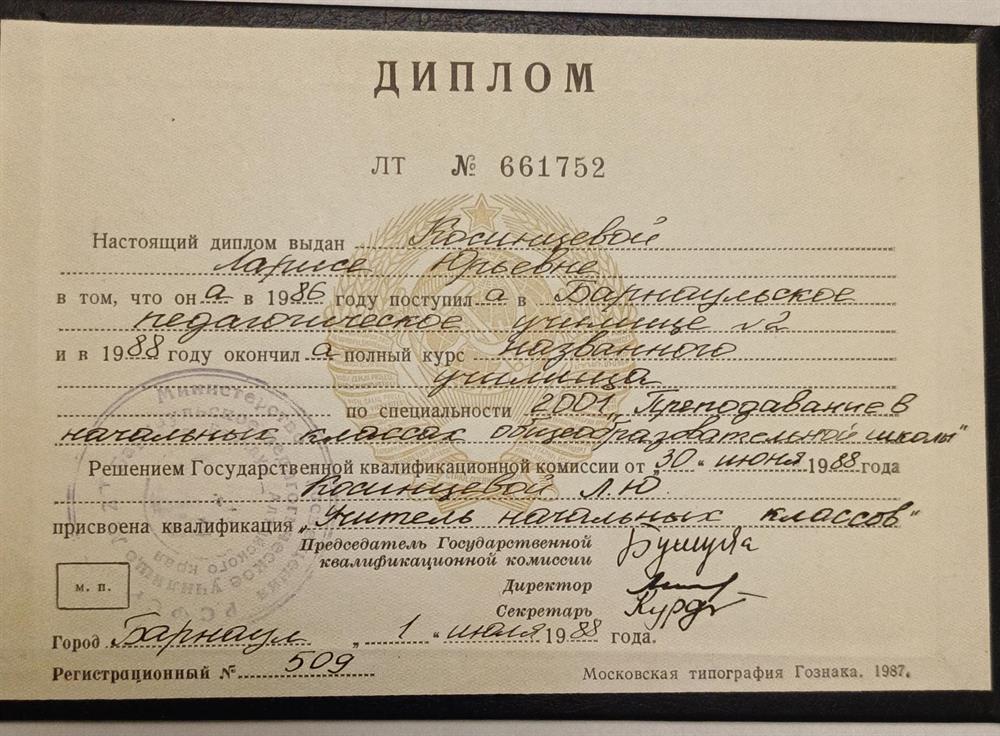 ДИПЛОМ
ЛТ № 661752
Настоящий диплом выдан Косинцевой
Ларисе Юрьевне
в том, что он а в 1986 году поступил а в Барнаульское
педагогическое училище №2
и в 1988 году окончил а полный курс названного
училища
по специальности 2001 „Преподавание в
начальных классах общеобразовательной школы“
Решением Государственной квалификационной комиссии от „30“ июня 1988 года
Косинцевой Л.Ю.
присвоена квалификация „Учитель начальных классов“
Председатель Государственной
квалификационной комиссии
Директор
Секретарь
м. п.
Город Барнаул „1“ июля 1988 года.
Регистрационный № 509
Московская типография Гознака. 1987.